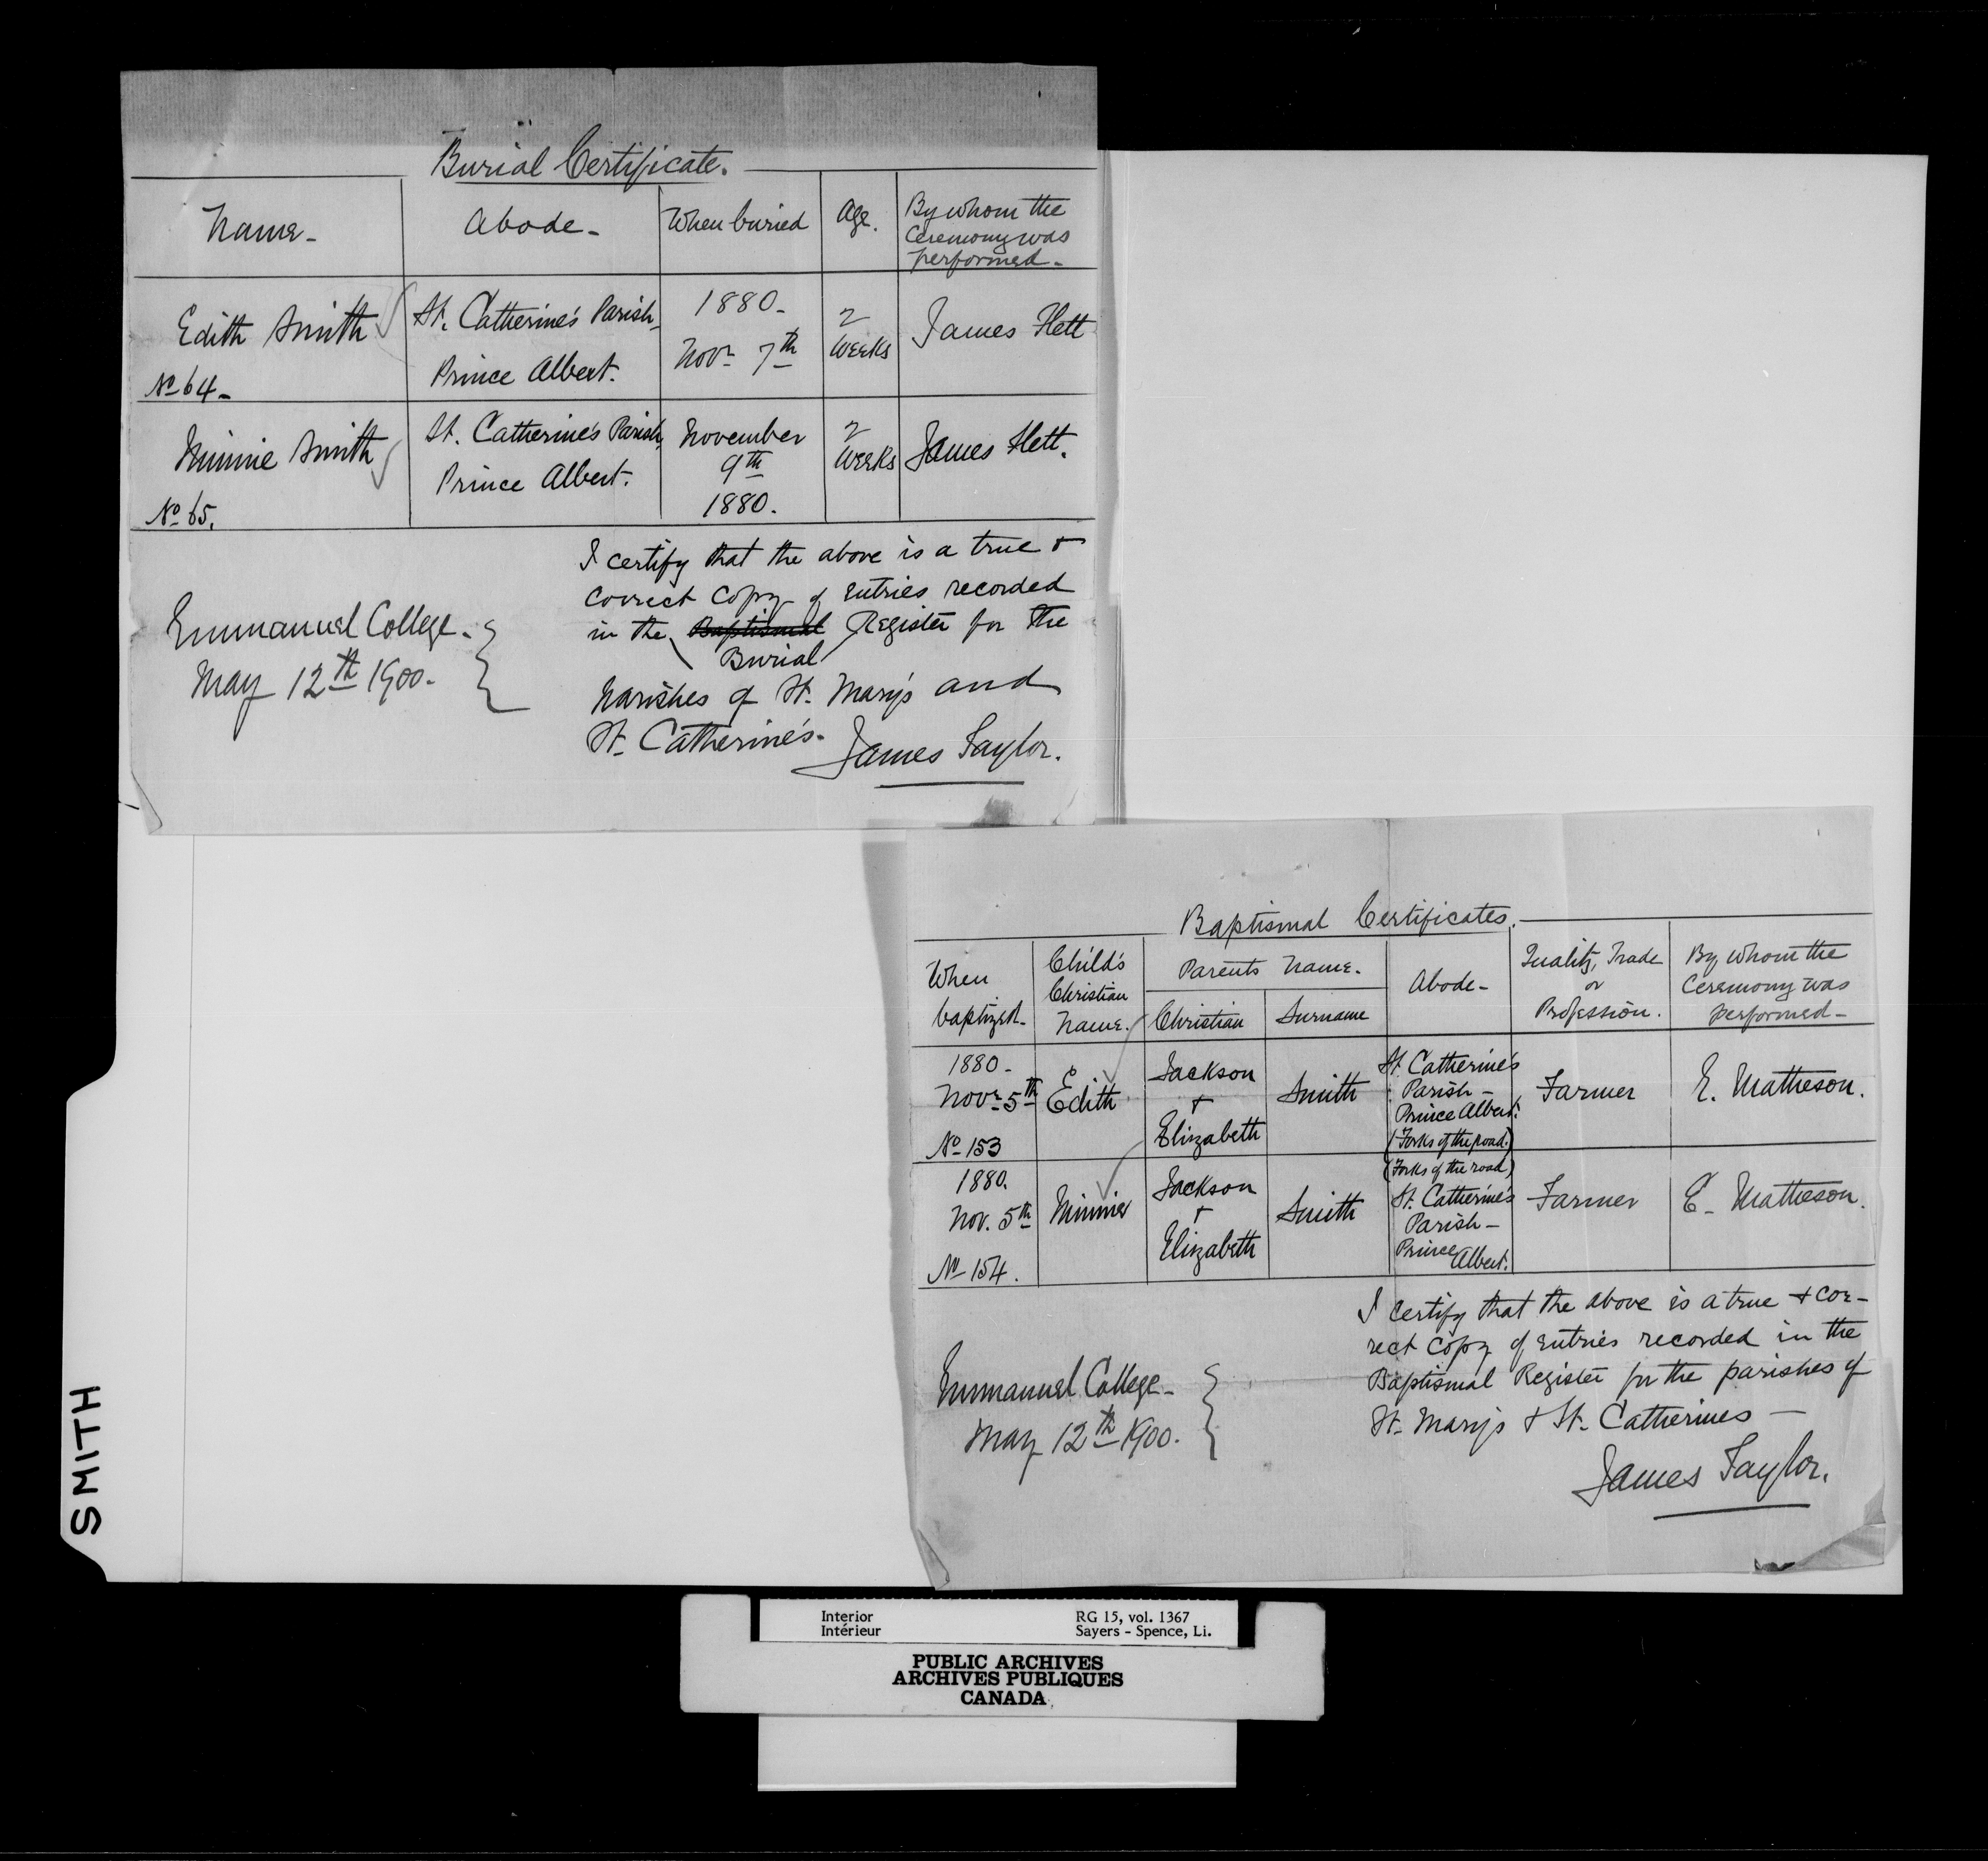 Burial Certificate.
Name -
Abode -
When buried
Age.
By whom the
Ceremony was
performed -
Edith Smith
No 64 -
St. Catherine's Parish -
Prince Albert.
1880 -
Novr 7th
2
weeks
James Flett
Minnie Smith
No 65.
St. Catherine's Parish,
Prince Albert.
November
9th
1880.
2
weeks
James Flett.
Emmanuel College -
May 12th 1900 -
I certify that the above is a true &
correct copy of entries recorded
in the Baptismal Register for the
Burial
Parishes of St. Mary's and
St. Catherine's -
James Taylor.
Baptismal Certificates.
When
baptized -
Child's
Christian
Name.
Parents Name.
Christian
Surname
Abode -
Quality, Trade
or
Profession.
By whom the
Ceremony was
performed -
1880 -
Novr 5th
No 153
Edith
Jackson
&
Elizabeth
Smith
St. Catherine's
Parish -
Prince Albert.
(Forks of the road.)
Farmer
E. Matheson.
1880.
Nov. 5th
No 154.
Minnie
Jackson
&
Elizabeth
Smith
(Forks of the road)
St. Catherine's
Parish -
Prince
Albert.
Farmer
E. Matheson.
Emmanuel College -
May 12th 1900.
I certify that the above is a true & cor-
rect copy of entries recorded in the
Baptismal Register for the parishes of
St. Mary's & St. Catherines -
James Taylor.
SMITH
Interior
Intérieur
RG 15, vol. 1367
Sayers - Spence, Li.
PUBLIC ARCHIVES
ARCHIVES PUBLIQUES
CANADA